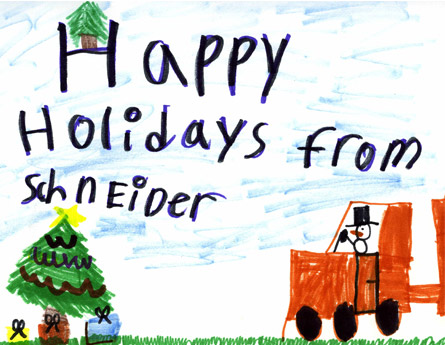 Happy
Holidays from
SchnEiDer